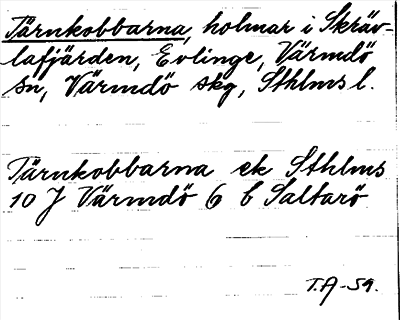 Tärnkobbarna, holmar i Skräv-
lafjärden, Evlinge, Värmdö
sn, Värmdö skg, Sthlms l.
Tärnkobbarna ek Sthlms
10 J Värmdö 6 b Saltarö
T.A-59.